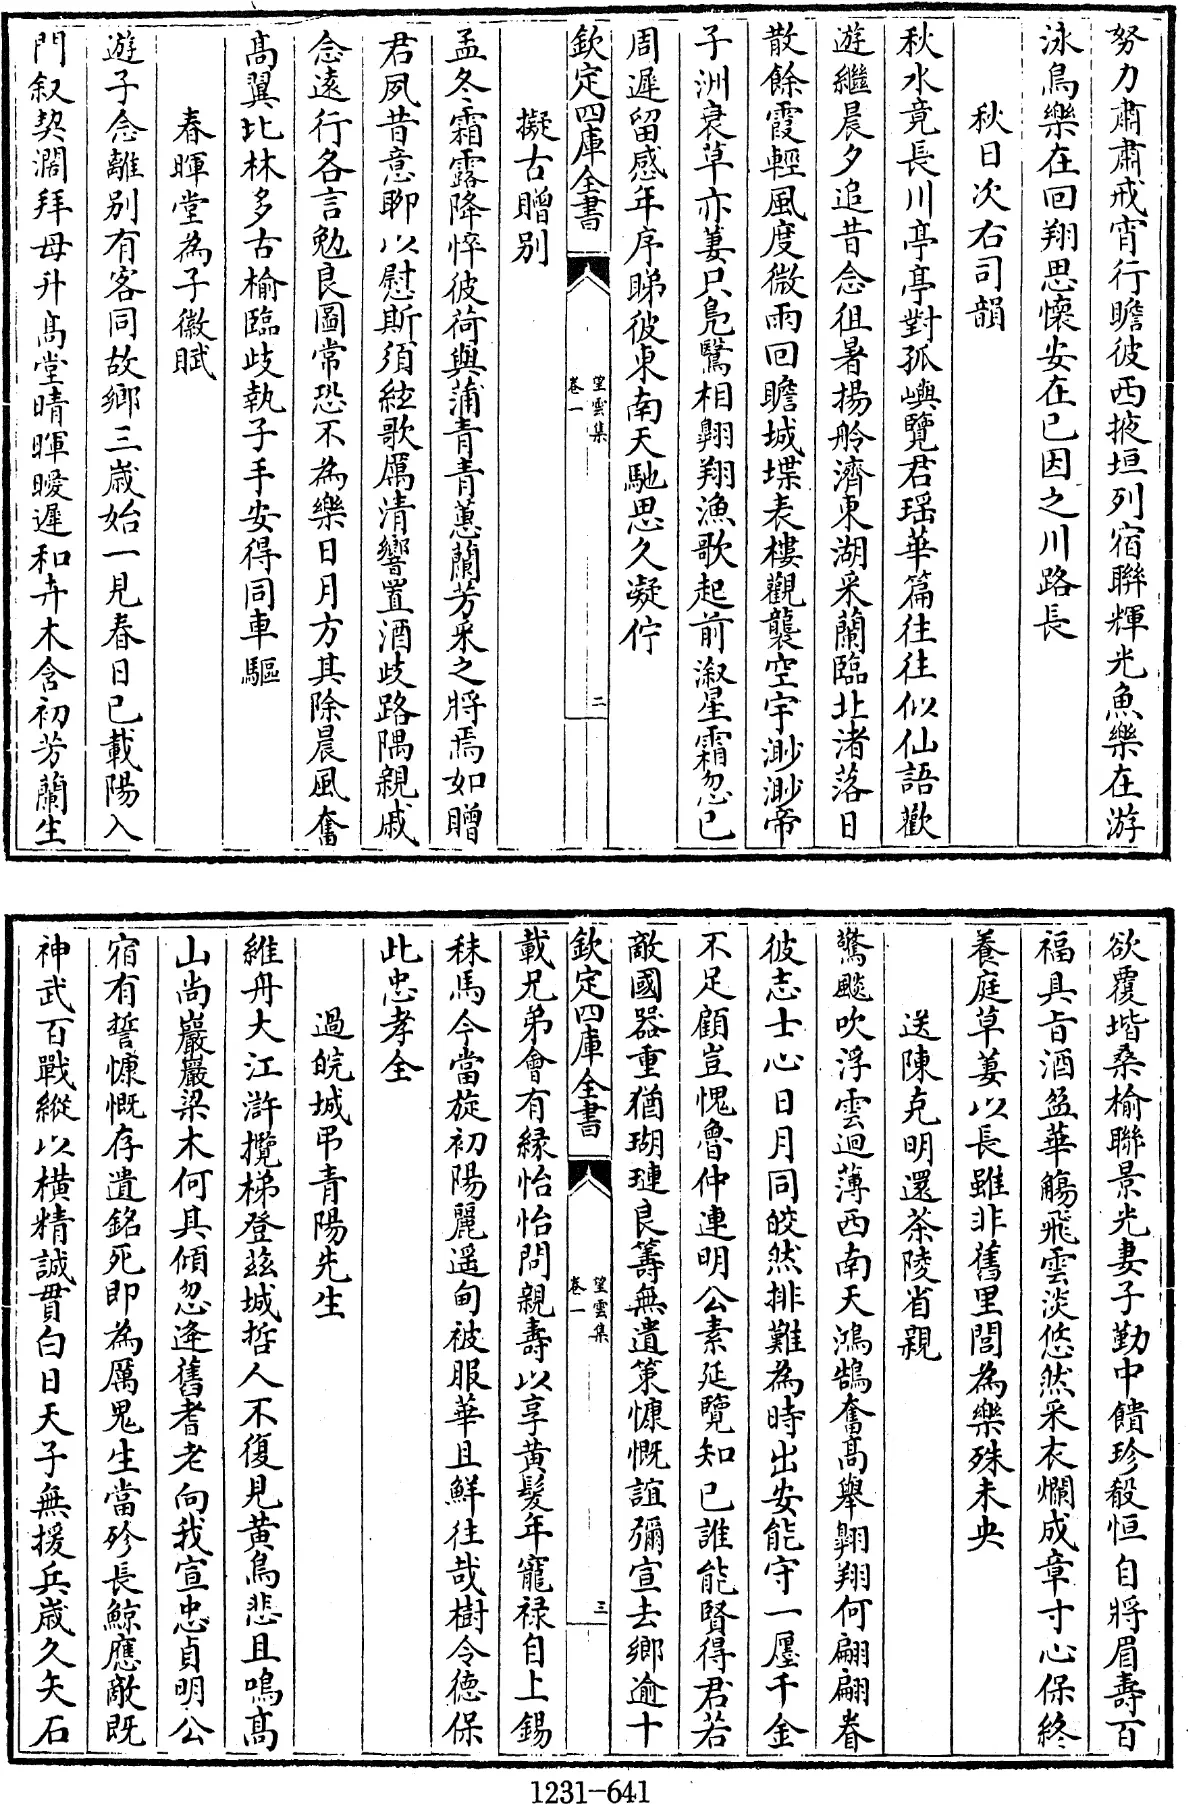 努力肅肅戒宵行瞻彼西掖垣列宿聨輝光魚樂在游
泳鳥樂在回翔思懐安在已因之川路長
秋日次右司韻
秋水竟長川亭亭對孤嶼覽君瑶華篇往往似仙語歡
遊繼晨夕追昔念徂暑揚舲濟東湖采蘭臨北渚落日
散餘霞輕風度微雨回瞻城堞表樓觀襲空宇渺渺帝
子洲衰草亦萋只鳬鷖相翺翔漁歌起前溆星霜忽已
周遲留感年序睇彼東南天馳思久凝佇
欽定四庫全書
望雲集
卷一
二
擬古贈别
孟冬霜露降悴彼荷與蒲青青蕙蘭芳采之將焉如贈
君夙昔意聊以慰斯須絃歌厲清響置酒歧路隅親戚
念逺行各言勉良圖常恐不為樂日月方其除晨風奮
高翼北林多古榆臨歧執子手安得同車驅
春暉堂為子徽賦
遊子念離别有客同故鄉三嵗始一見春日已載陽入
門叙契濶拜母升髙堂晴暉曖遲和卉木含初芳蘭生
欲覆堦桑榆聨景光妻子勤中饋珍殽恒自將眉壽百
福具㫖酒盈華觴飛雲淡悠然采衣爛成章寸心保終
養庭草萋以長雖非舊里閭為樂殊未央
送陳克明還茶陵省親
驚飈吹浮雲迴薄西南天鴻鵠奮高舉翺翔何翩翩眷
彼志士心日月同皎然排難為時出安能守一廛千金
不足顧豈愧魯仲連明公素延覽知已誰能賢得君若
敵國器重猶瑚璉良籌無遺策慷慨誼彌宣去鄉逾十
欽定四庫全書
望雲集
卷一
三
載兄弟會有縁怡怡問親壽以享黄髪年寵禄自上錫
秣馬今當旋初陽麗遥甸被服華且鮮往哉樹令徳保
此忠孝全
過皖城弔青陽先生
維舟大江滸攬梯登兹城哲人不復見黄鳥悲且鳴髙
山尚巖巖梁木何其傾忽逢舊耆老向我宣忠貞明公
宿有誓慷慨存遺銘死即為厲鬼生當殄長鯨應敵既
神武百戰縱以横精誠貫白日天子無援兵嵗久矢石
1231-641